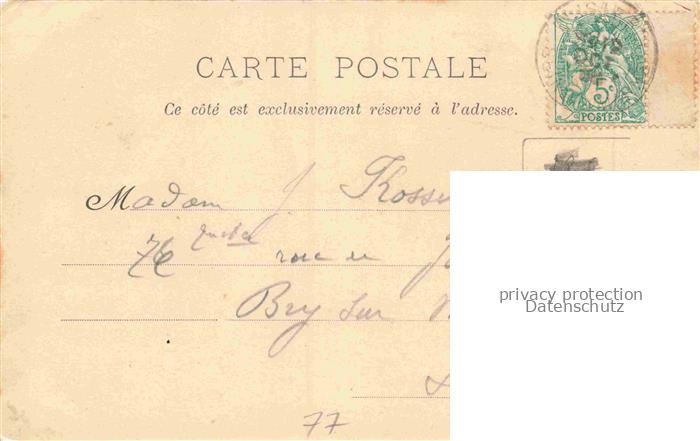 CARTE POSTALE
Ce côté est exclusivement réservé à l'adresse.
5c
POSTES
Madam J Koss
76 rue
Bry sur
77
privacy protection
Datenschutz